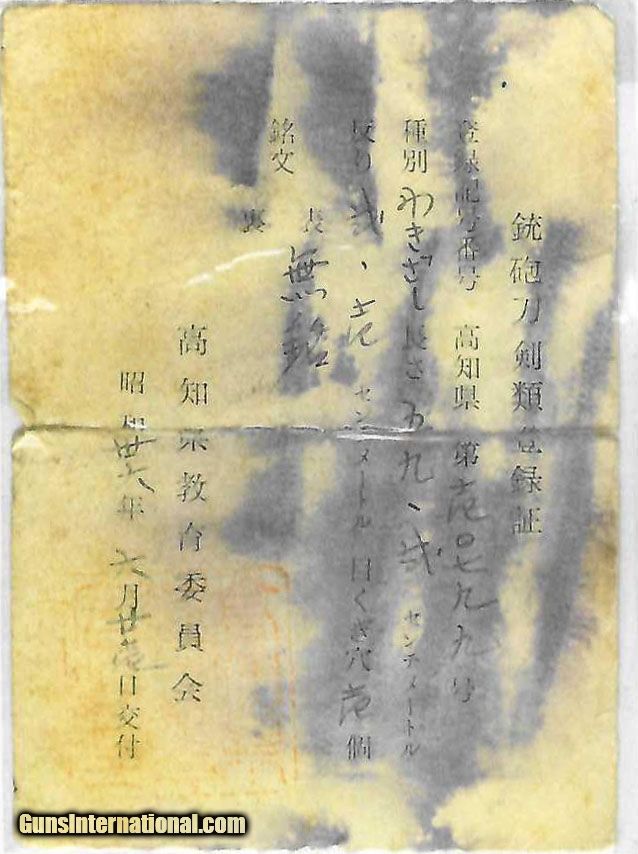 銃砲刀剣類登録証
登録記号番号 高知県 第 九九号
種別 わきざし 長さ 五九、弐 センチメートル
反り 弐、壱 センチメートル 目くぎ穴 壱 個
銘文 表 無銘
裏
高知県教育委員会
昭和 年 月廿壱日交付
GunsInternational.com